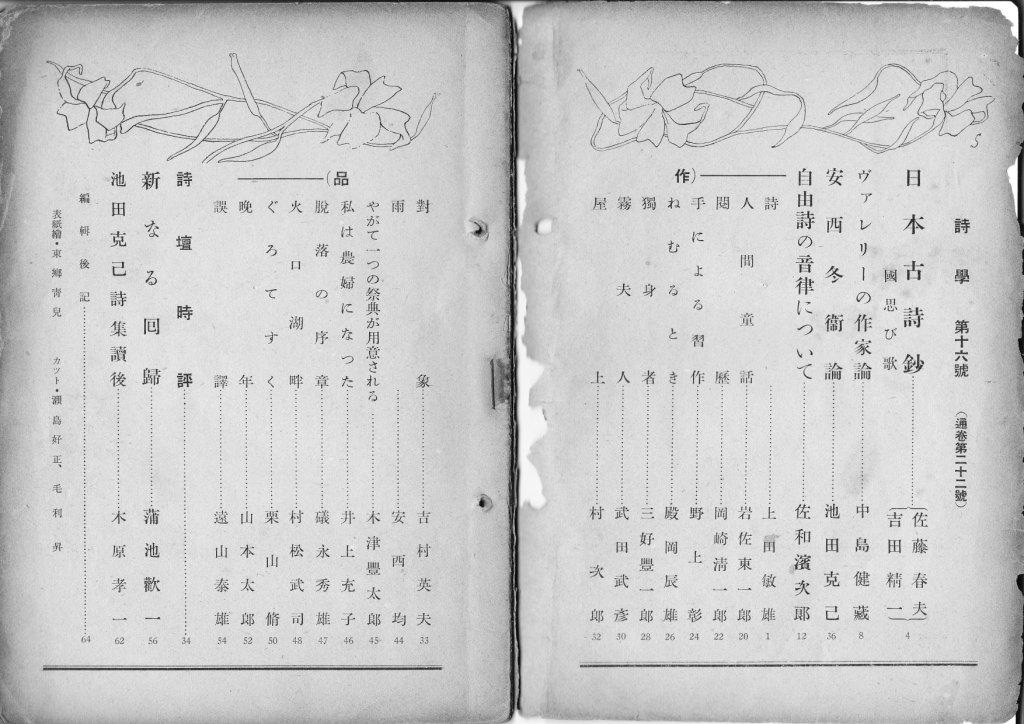 詩學 第十六號 (通卷第二十二號)
日本古詩鈔 國思び歌 佐藤春夫 吉田精一 4
ヴァレリーの作家論 中島健藏 8
安西冬衞論 池田克己 36
自由詩の音律について 佐和濱次郎 12
詩 上田敏雄 1
人間童話 岩佐東一郎 20
閲歷 岡崎淸一郎 22
手による習作 野上彰 24
ねむるとき 殿岡辰雄 26
獨身者 三好豐一郎 28
霧夫人 武田武彥 30
屋上 村次郎 32
(作
品)
對象 吉村英夫 33
雨 安西均 44
やがて一つの祭典が用意される 木津豐太郎 45
私は農婦になつた 井上充子 46
脫落の序章 礒永秀雄 47
火口湖畔 村松武司 48
ぐろてすく 栗山脩 50
晚年 山本太郎 52
誤譯 遠山泰雄 54
詩壇時評 34
新なる囘歸 蒲池歡一 56
池田克己詩集讀後 木原孝一 62
編輯後記 64
表紙繪・東鄕靑兒 カツト・瀨島好正、毛利昇